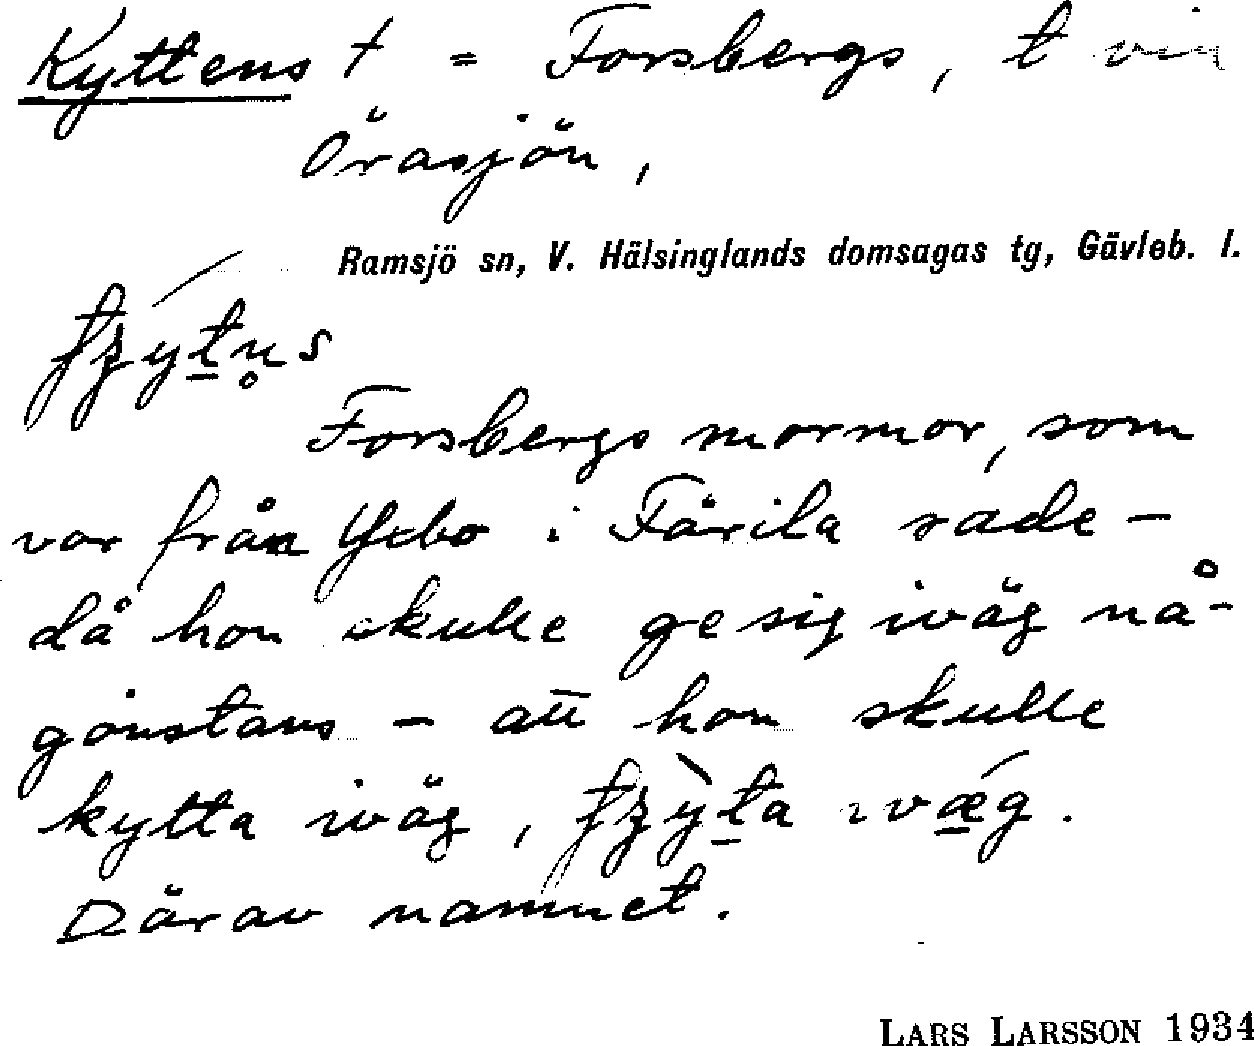 Kyttens t = Forsbergs, t vid
Örasjön,
Ramsjö sn, V. Hälsinglands domsagas tg, Gävleb. l.
Forsbergs mormor, som
var från Ygbo i Färila sade –
då hon skulle ge sig iväg nå-
gonstans – att hon skulle
kytta iväg,
Därav namnet.
LARS LARSSON 1934